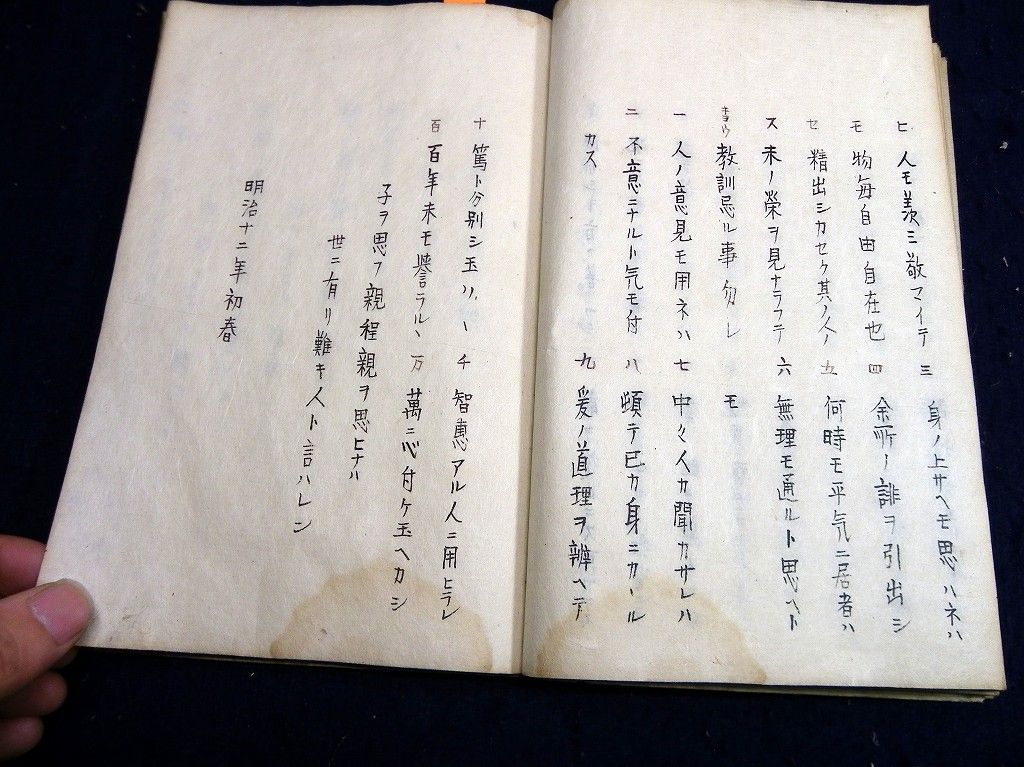 ヒ 人モ羨ミ敬マイテ 三 身ノ上サヘモ思ハネハ
モ 物毎自由自在也 四 余所ノ誹ヲ引出シ
セ 精出シカセケ其ノ人ノ 五 何時モ平気ニ居者ハ
ス 末ノ榮ヲ見ナラフテ 六 無理モ通ルト思ヘト
教訓忌ル事勿レ モ
一 人ノ意見モ用ネハ 七 中々人カ聞カサレハ
ニ 不意ニナルト気モ付 八 頓テ己カ身ニカヽル
カス 九 爰ノ道理ヲ辨ヘテ
十 篤ト分別シ玉ハヽ 千 智恵アル人ニ用ヒラレ
百 百年末モ誉ラルヽ 万 萬ニ心付ケ玉ヘカシ
子ヲ思フ親程親ヲ思ヒナハ
世ニ有リ難キ人ト言ハレン
明治十二年初春